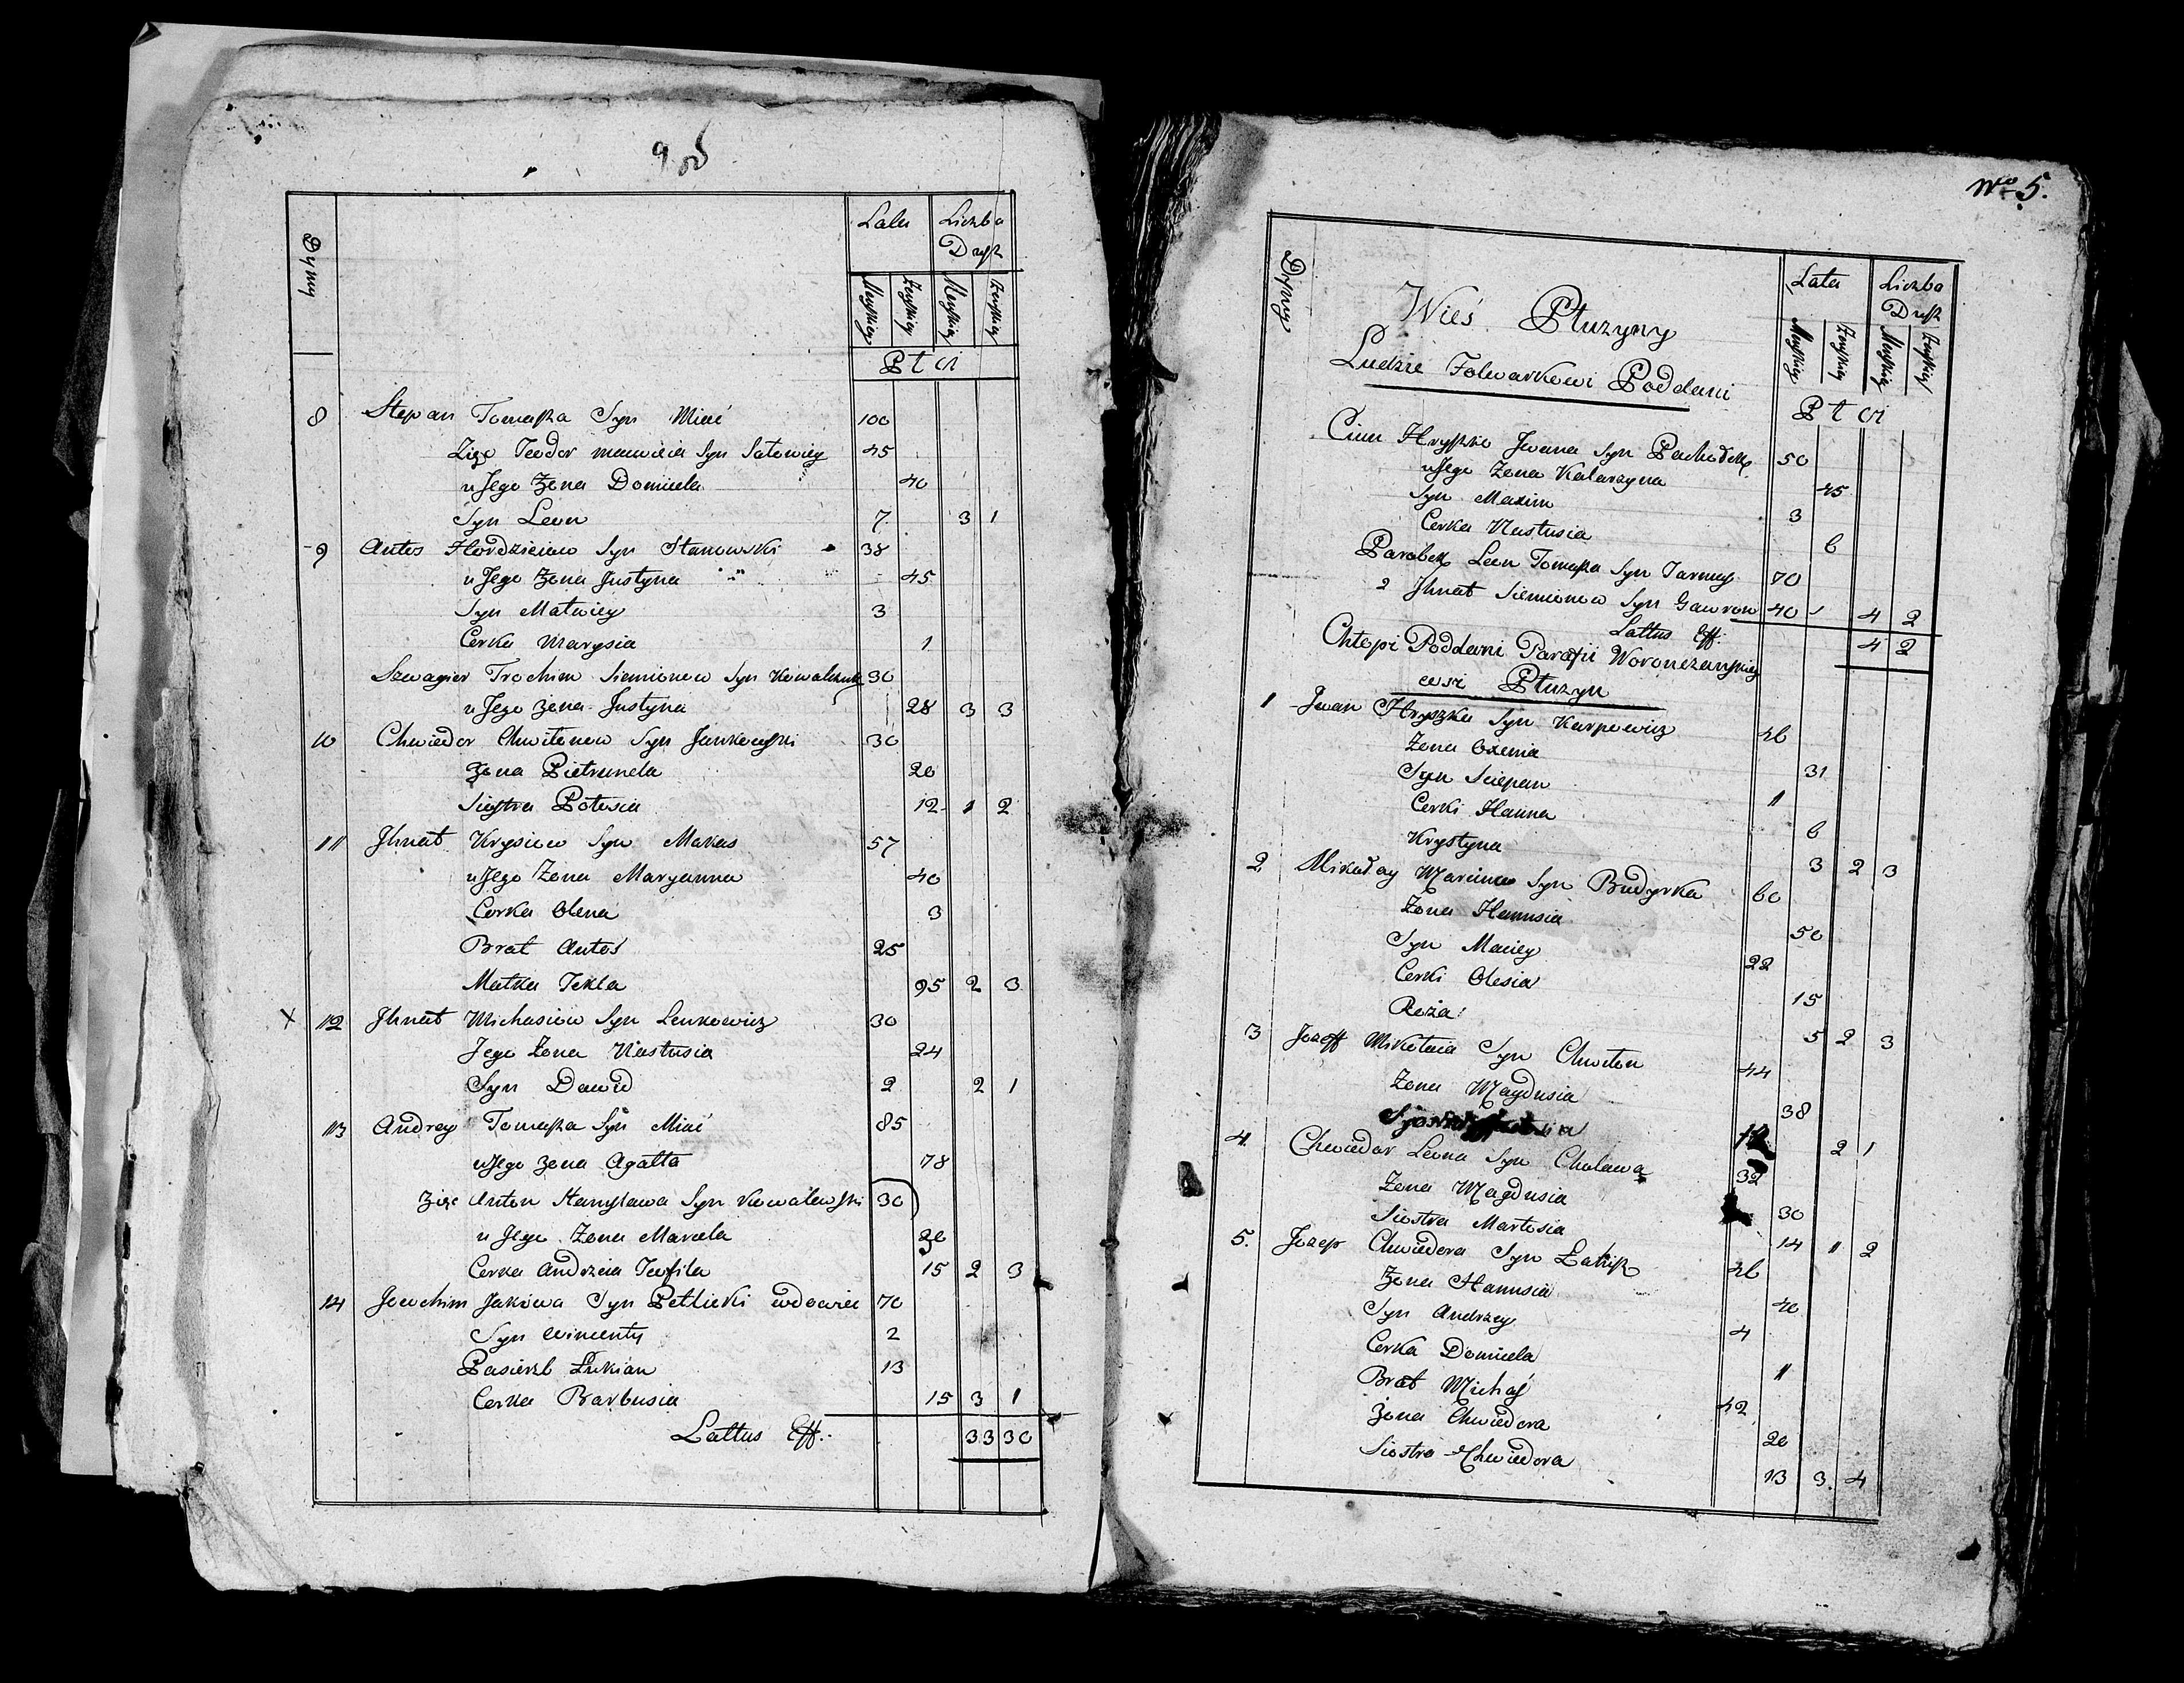 Dymy
Lata Liczba Dusz
Męskiey Żeńskiey Męskiey Żeńskiey
Płci
8 Stepan Tomasza Syn Mićć 100
Zięć Teodor Syn 45
u Jego Żena Domicela 40
Syn Leon 7 3 1
9 Antos Hordzieiow Syn Stanowski 38
u Jego Żena Justyna 45
Syn Matwiey 3
Cerka Marysia 1
Szwagier Trochim Siemionow Syn Kowalczuk 30
u Jego Żena Justyna 28 3 3
10 Chwiedor Chwitonow Syn Jankowski 30
Żena Pietrunela 20
Siostra Polusia 12 1 2
11 Jhnat Krysiow Syn Makas 57
u Jego Żena Maryanna 40
Cerka Olena 3
Brat Antoś 25
Matka Tekla 95 2 3
X 12 Jhnat Michasiow Syn Lenkowicz 30
Jego Żena Nastusia 24
Syn Dawid 2 2 1
13 Andrey Tomasza Syn Mićć 85
u Jego Żena Agatta 78
Zięć Anton Stanisława Syn Kowalewski 30
u Jego Żena Marcela 20
Cerka Andrzeia Teofila 15 2 3
14 Joachim Jakówa Syn Petlicki wdowiec 70
Syn Wincenty 2
Pasierzb Łukian 13
Cerka Barbusia 15 3 1
Lattus Eff: 33 30
No 5.
Dymy
Lata Liczba Dusz
Męskiey Żeńskiey Męskiey Żeńskiey
Płci
Wieś Płużyny
Ludzie Folwarkowi Poddani
Ciwun Hryszko Jwana Syn Pachodko 50
u Jego Żena Katarzyna 45
Syn Maxim 3
Cerka Nastusia 6
Parobek Leon Tomasza Syn 70
2 Jhnat Siemionow Syn Gawron 40 4 2
Lattus Eff: 4 2
Chłopi Poddani Parafii Woronczańskiey
wsi Płużyn
1 Jwan Hryszka Syn Karpowicz 46
Żena Oxenia 31
Syn Sciepan 11
Cerki Hanna 6
Krystyna 3 2 3
2 Mikołay Marcina Syn Budyrka 60
Żona Hanusia 50
Syn Maciey 22
Cerki Olesia 15
Roża 5 2 3
3 Jozeff Mikołaia Syn Chwiton 44
Żena Magdusia 38
2 1
4. Chwiedor Leona Syn Cholawa 32
Żena Magdusia 30
Siostra Martosia 14 1 2
5. Jozep Chwiedora Syn Łatysz 46
Żena Hanusia 40
Syn Andrzey 4
Cerka Domicela 11
Brat Michaś 42
Żena Chwiedora 20
Siostra Chwiedora 13 3. 4